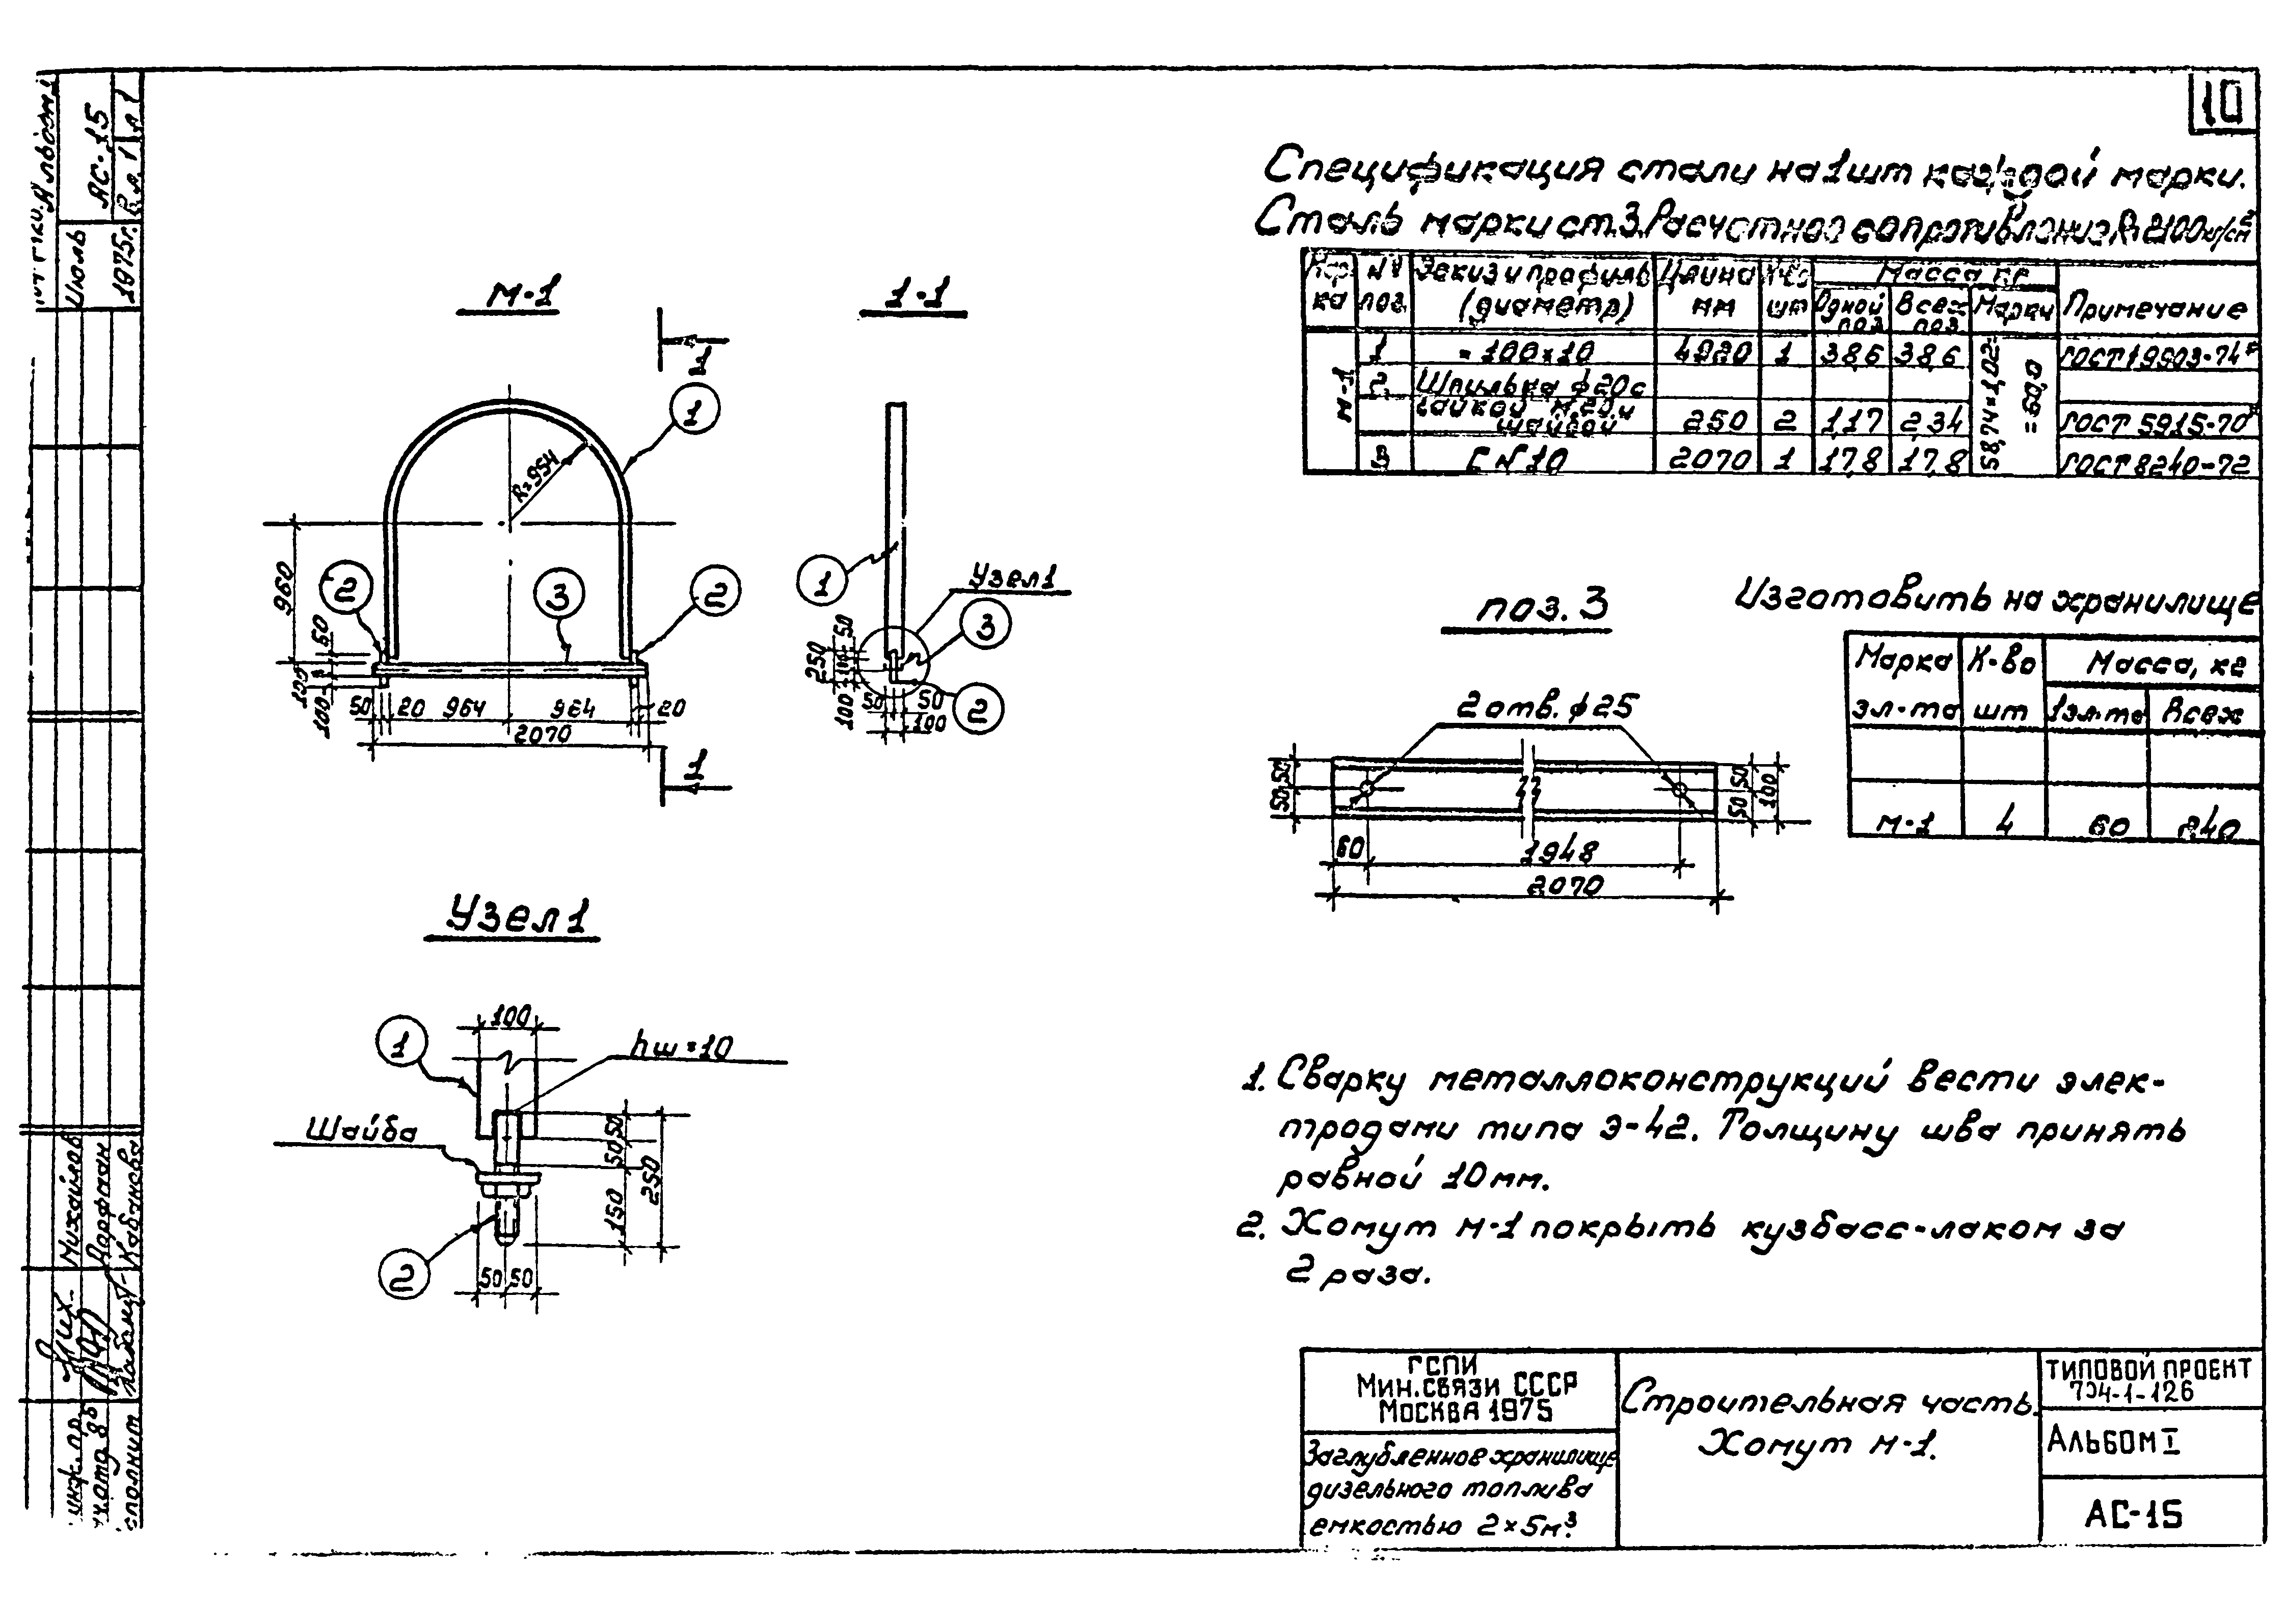 10
Спецификация стали на 1шт каждой марки.
Сталь марки ст.3. Расчетное сопротивление R=2100кг/см²
Мар- ка | № поз. | Эскиз и профиль (диаметр) | Длина мм | К-во шт | Масса кг | Примечание
Одной поз | Всех поз | Марки
М-1 | 1 | -100×10 | 4920 | 1 | 38,6 | 38,6 | 58,74×1,02= =60,0 | ГОСТ 19903-74*
2 | Шпилька ф20 с
гайкой М20 и
шайбой | 250 | 2 | 1,17 | 2,34 | ГОСТ 5915-70*
3 | С №10 | 2070 | 1 | 17,8 | 17,8 | ГОСТ 8240-72
М-1
1
1
R=954
960
50
100
100
2
3
2
50 20 964 964 20
2070
1
1-1
1
Узел1
3
2
50
250
100
50 50
100
поз. 3
2 отв. ф 25
50 50
50 50
100
60 1948
2070
Изготовить на хранилище
Марка эл-та | К-во шт | Масса, кг
1эл-та | Всех
М-1 | 4 | 60 | 240
Узел 1
100
1
hш=10
Шайба
50
50
150
250
2
50 50
1. Сварку металлоконструкций вести элек-
тродами типа Э-42. Толщину шва принять
равной 10мм.
2. Хомут М-1 покрыть кузбасс-лаком за
2 раза.
ГСПИ
Мин.связи СССР
Москва 1975
Заглубленное хранилище
дизельного топлива
емкостью 2×5м³.
Строительная часть.
Хомут М-1.
ТИПОВОЙ ПРОЕКТ
704-1-126
Альбом I
АС-15
АС-15
Июль
1975г.
Михайлов
Дорфман